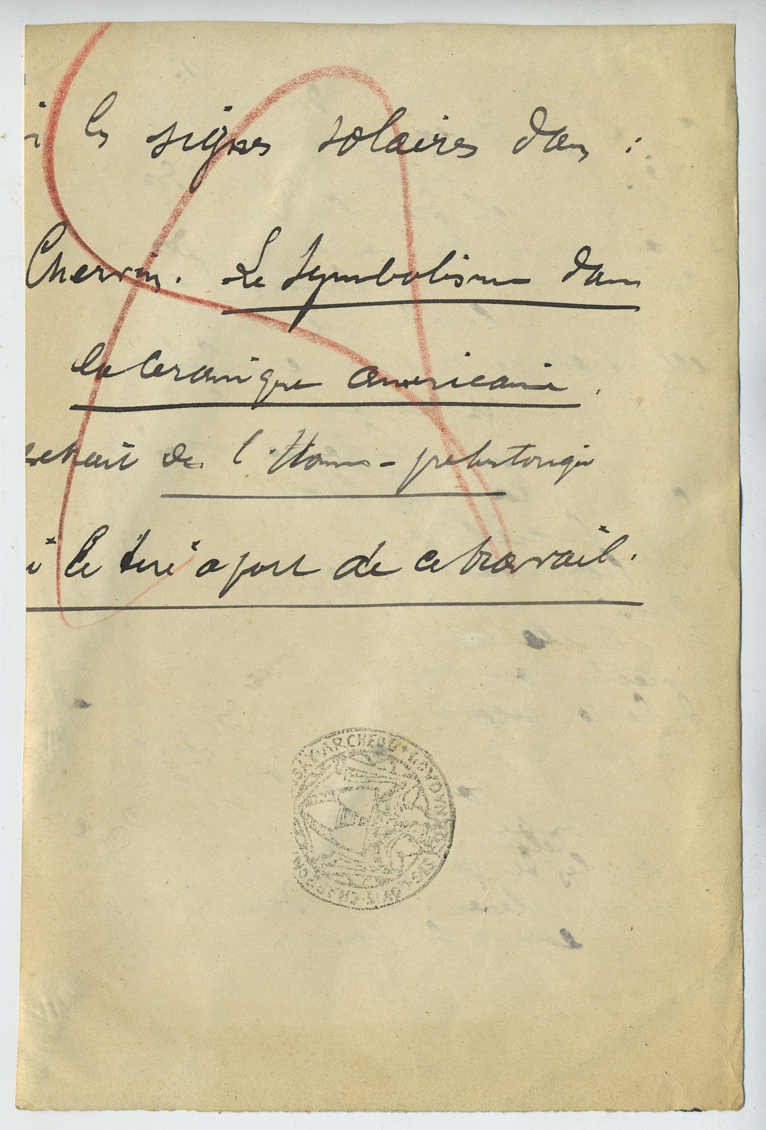 i les signes solaires dans :
Chervin. Le Symbolisme dans
la Ceramique américaine.
extrait de l'Homme-préhistorique
i le tiré a part de ce travail.
ARCHEOL